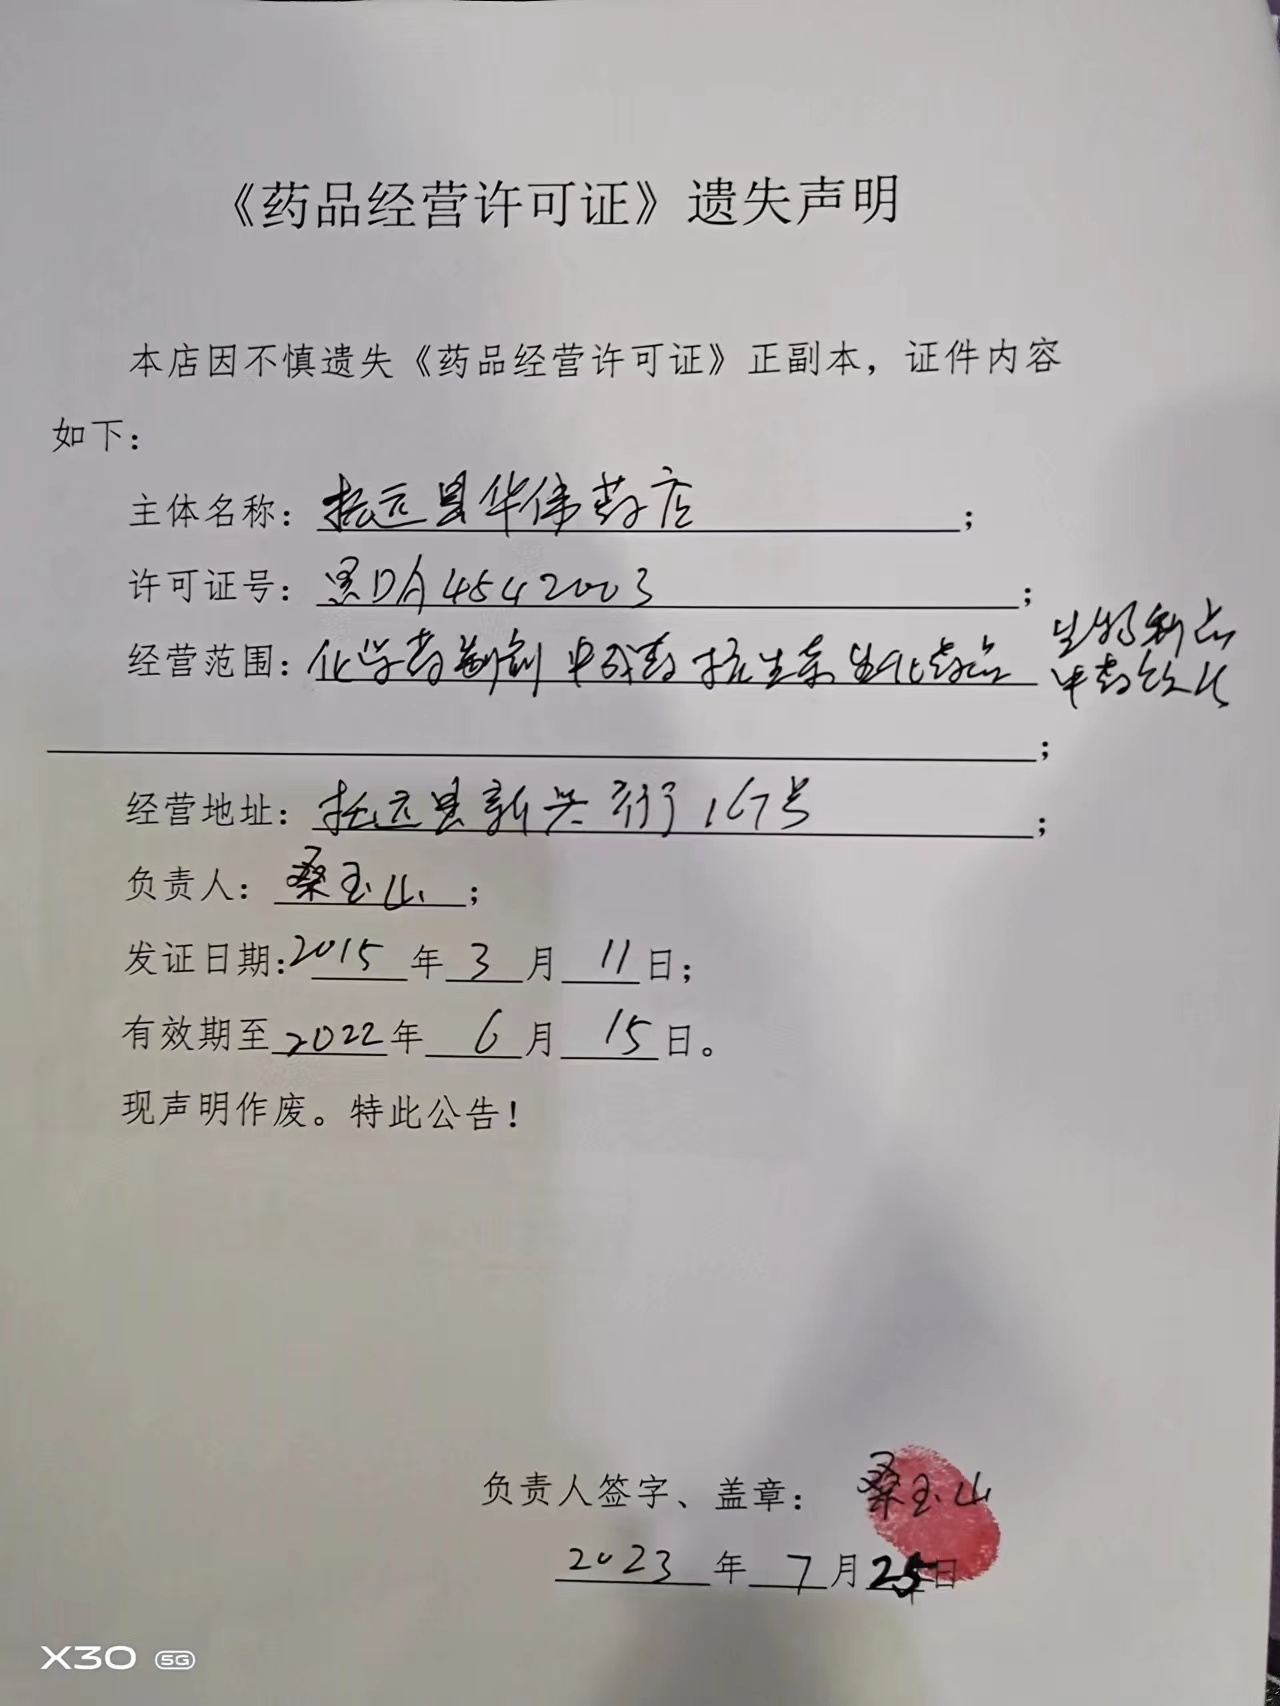 《药品经营许可证》遗失声明
本店因不慎遗失《药品经营许可证》正副本，证件内容
如下：
主体名称：抚远县华伟药店；
许可证号：黑DA4542003；
经营范围：化学药制剂 中成药 抗生素 生化药品 生物制品
中药饮片
；
经营地址：抚远县新兴街167号；
负责人：桑玉山；
发证日期：2015年3月11日；
有效期至2022年6月15日。
现声明作废。特此公告！
负责人签字、盖章：桑玉山
2023年7月25日
X30 5G